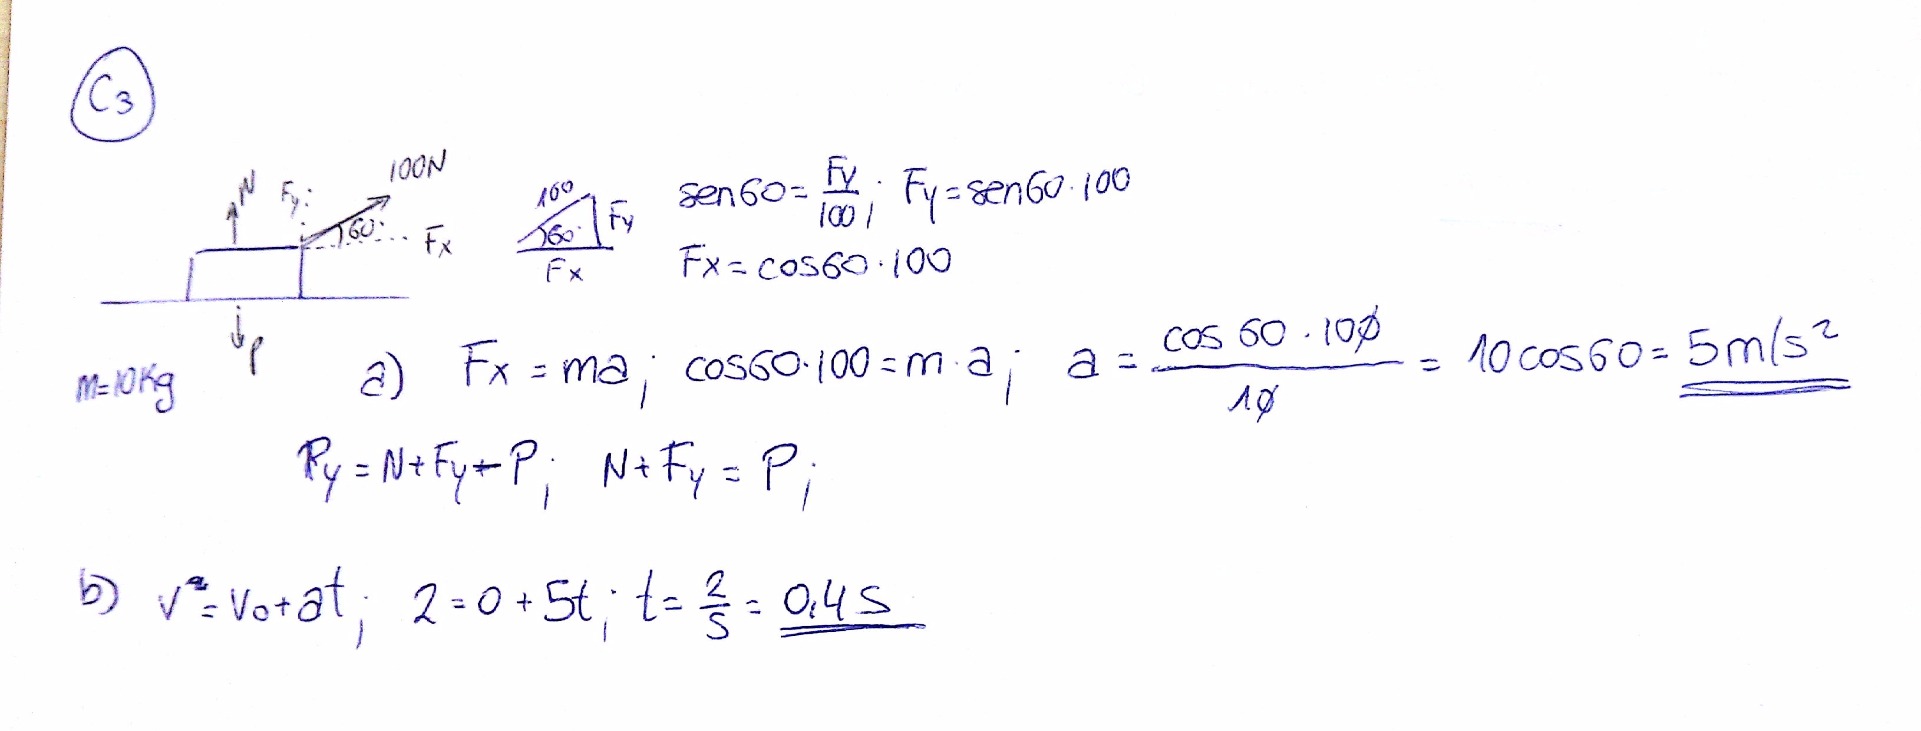 C3
100N
N Fy 60 Fx
P
m=10Kg
100
60 Fy
Fx
sen60 = Fy/100; Fy = sen60·100
Fx = cos60·100
a) Fx = ma; cos60·100 = m·a; a = cos 60·100/10 = 10 cos60 = 5m/s²
Ry = N+Fy-P; N+Fy = P;
b) v = v0+at; 2=0+5t; t= 2/5 = 0,4 s